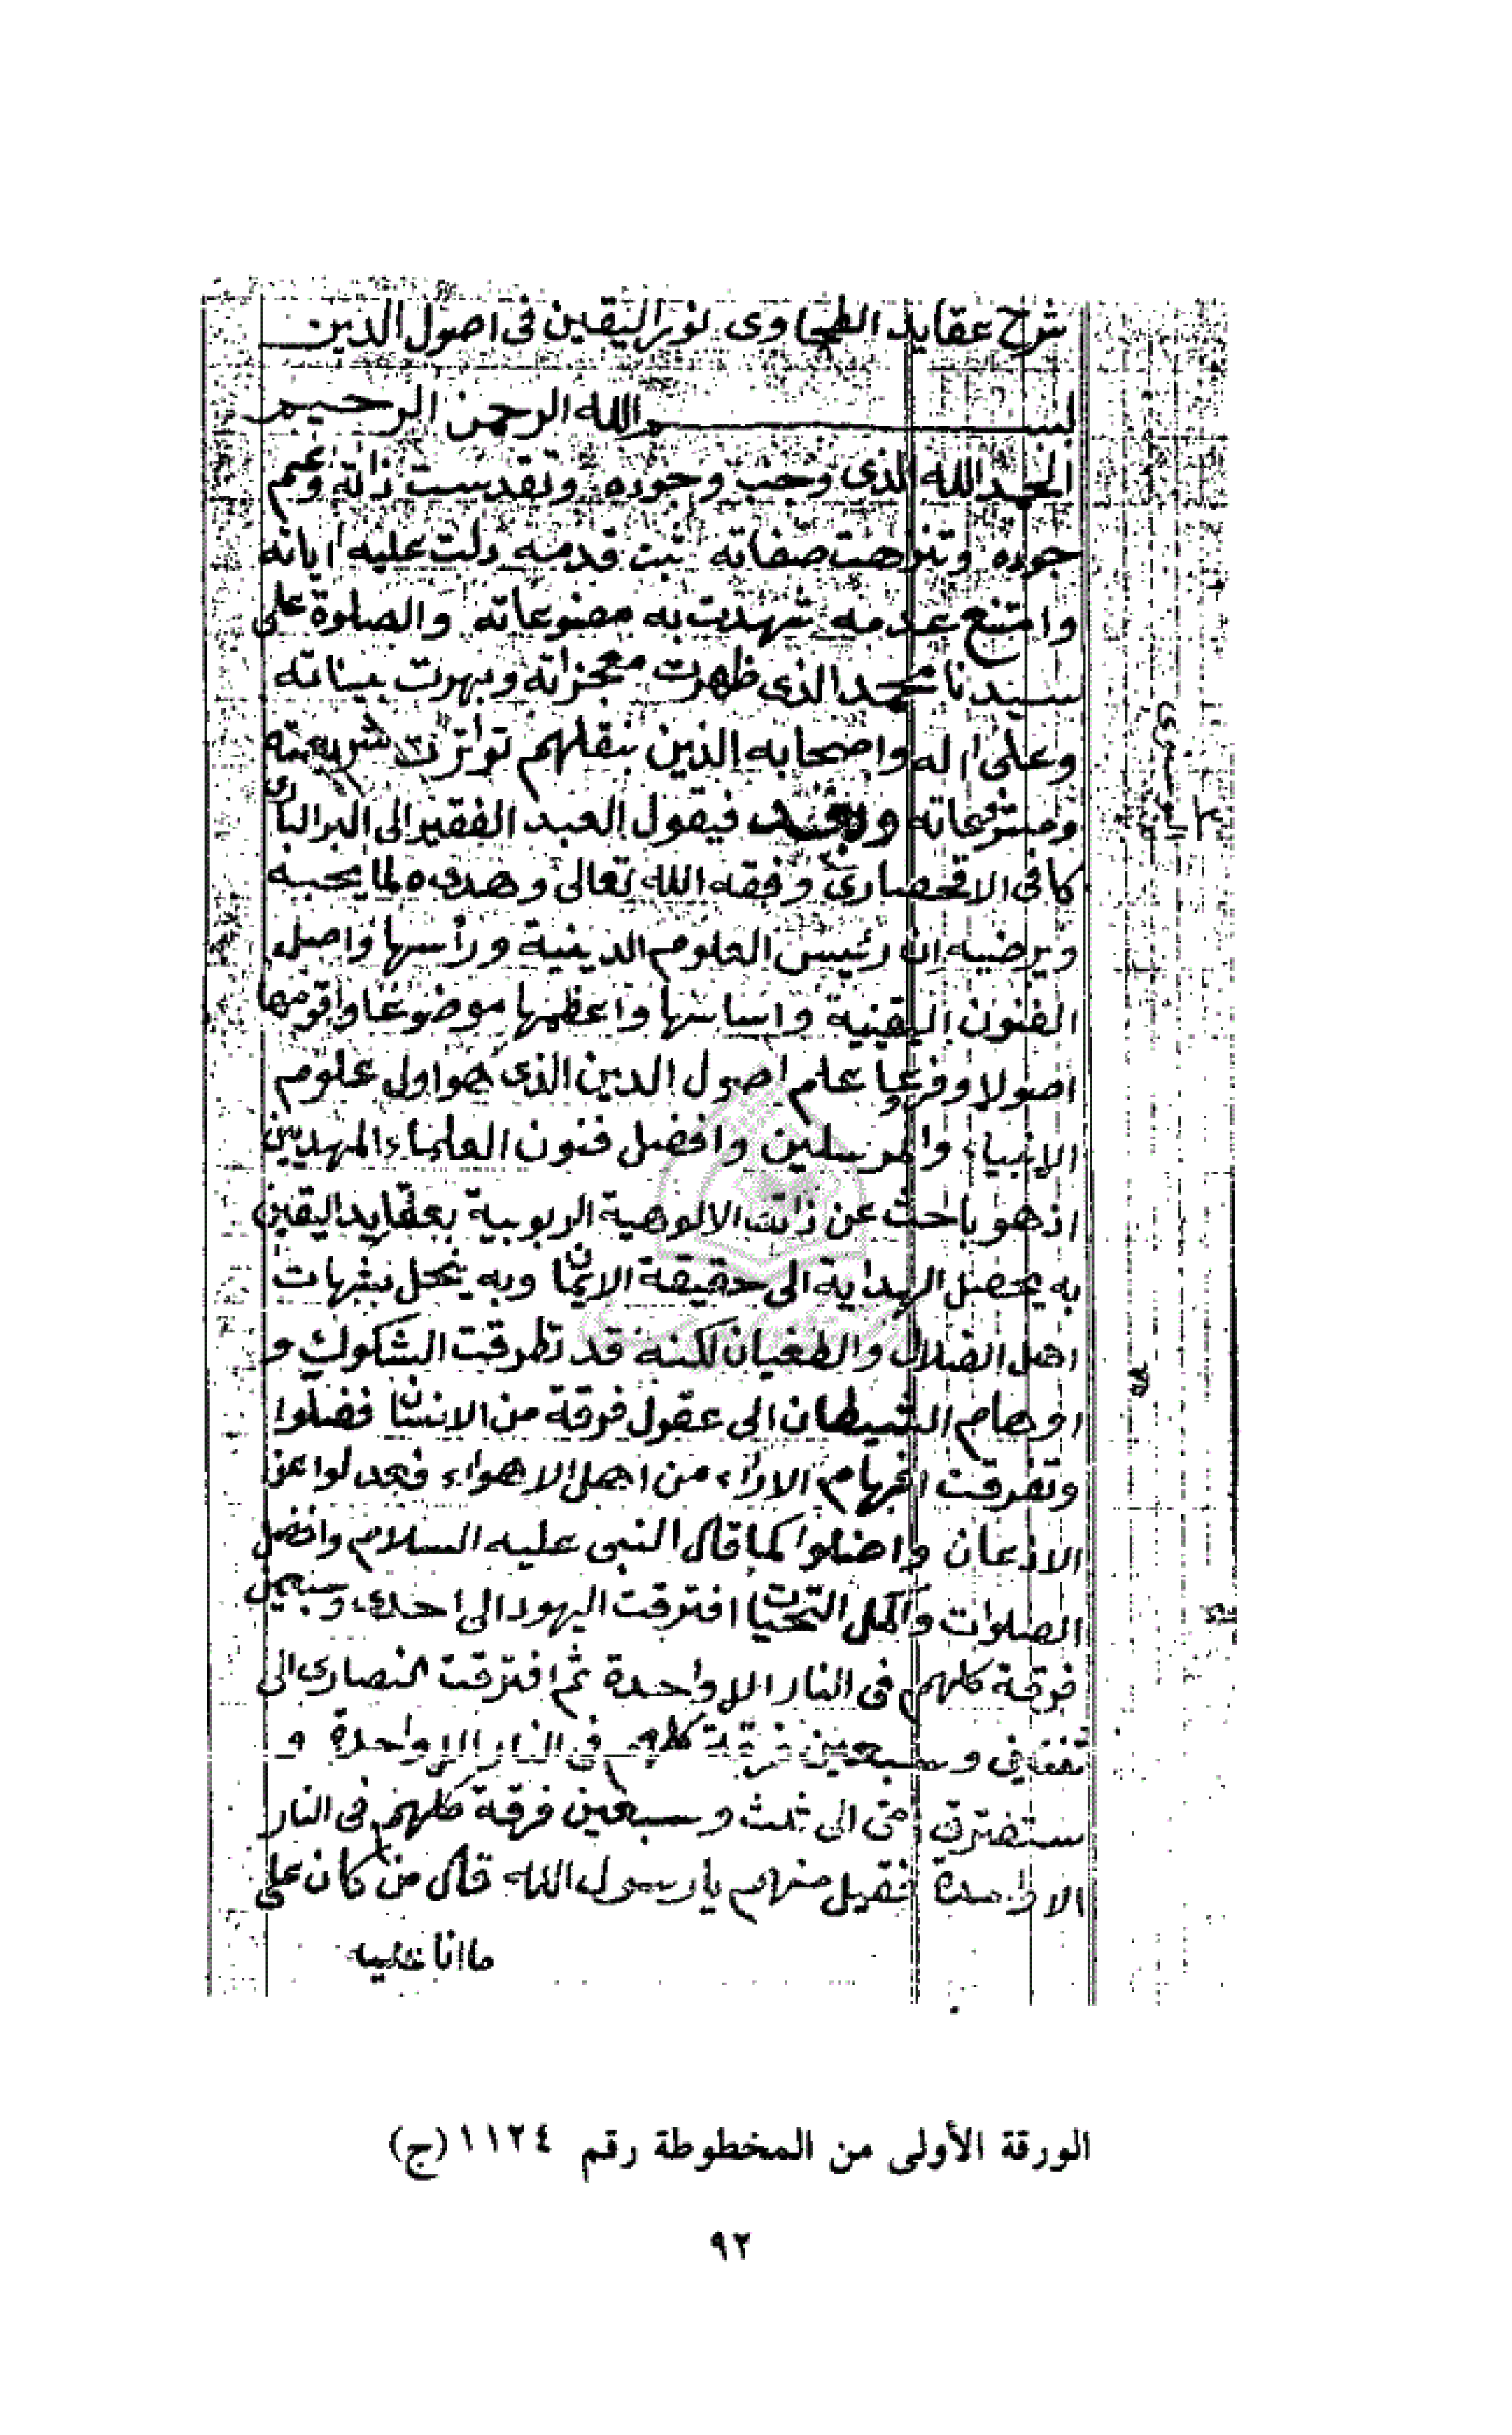 شرح عقايد الطحاوى نور اليقين فى اصول الدين
بسم الله الرحمن الرحيم
الحمد الله الذى وجب وجوده وتقدست ذاته وعمم
جوده وتنزهت صفاته ثبت قدمه دلت عليه اياته
وامتنع عدمه شهدت به مصنوعاته والصلوة على
سيدنا محمد الذى ظهرت معجزاته وبهرت بيناته
وعلى اله واصحابه الذين بنقلهم تواترت شريعته
ومسترفحاته وبعد فيقول العبد الفقير الى البر البارى
كافى الاقحصارى وفقه الله تعالى وهداه لما يحبه
ويرضيه ان رئيس العلوم الدينية ورأسها واصل
الفنون اليقينية واساسها واعظمها موضوعا واقومها
اصولا وفروعا علم اصول الدين الذى هو اول علوم
الانبياء والمرسلين وافضل فنون العلماء المهديين
اذ هو باحث عن ذات الالوهية الربوبية بعقايد اليقين
به يحصل الهداية الى حقيقة الايمان وبه ينحل شبهات
اهل الضلال والطغيان لكنه قد تطرقت الشكوك و
اوهام الشيطان الى عقول فرقة من الانسان فضلوا
وتفرقت افهام الاراء من اهل الاهواء فعدلوا عن
الاذعان واضلوا كما قال النبى عليه السلام وافضل
الصلوات واكمل التحيات افترقت اليهود الى احدى وسبعين
فرقة كلهم فى النار الا واحدة ثم افترقت النصارى الى
وسبعين فرقة كلهم فى النار الا واحدة و
ستفترق امتى الى ثلث وسبعين فرقة كلهم فى النار
الا واحدة فقيل منهم يا رسول الله قال من كان على
ما انا عليه
الورقة الأولى من المخطوطة رقم ١١٢٤ (ج)
٩٢